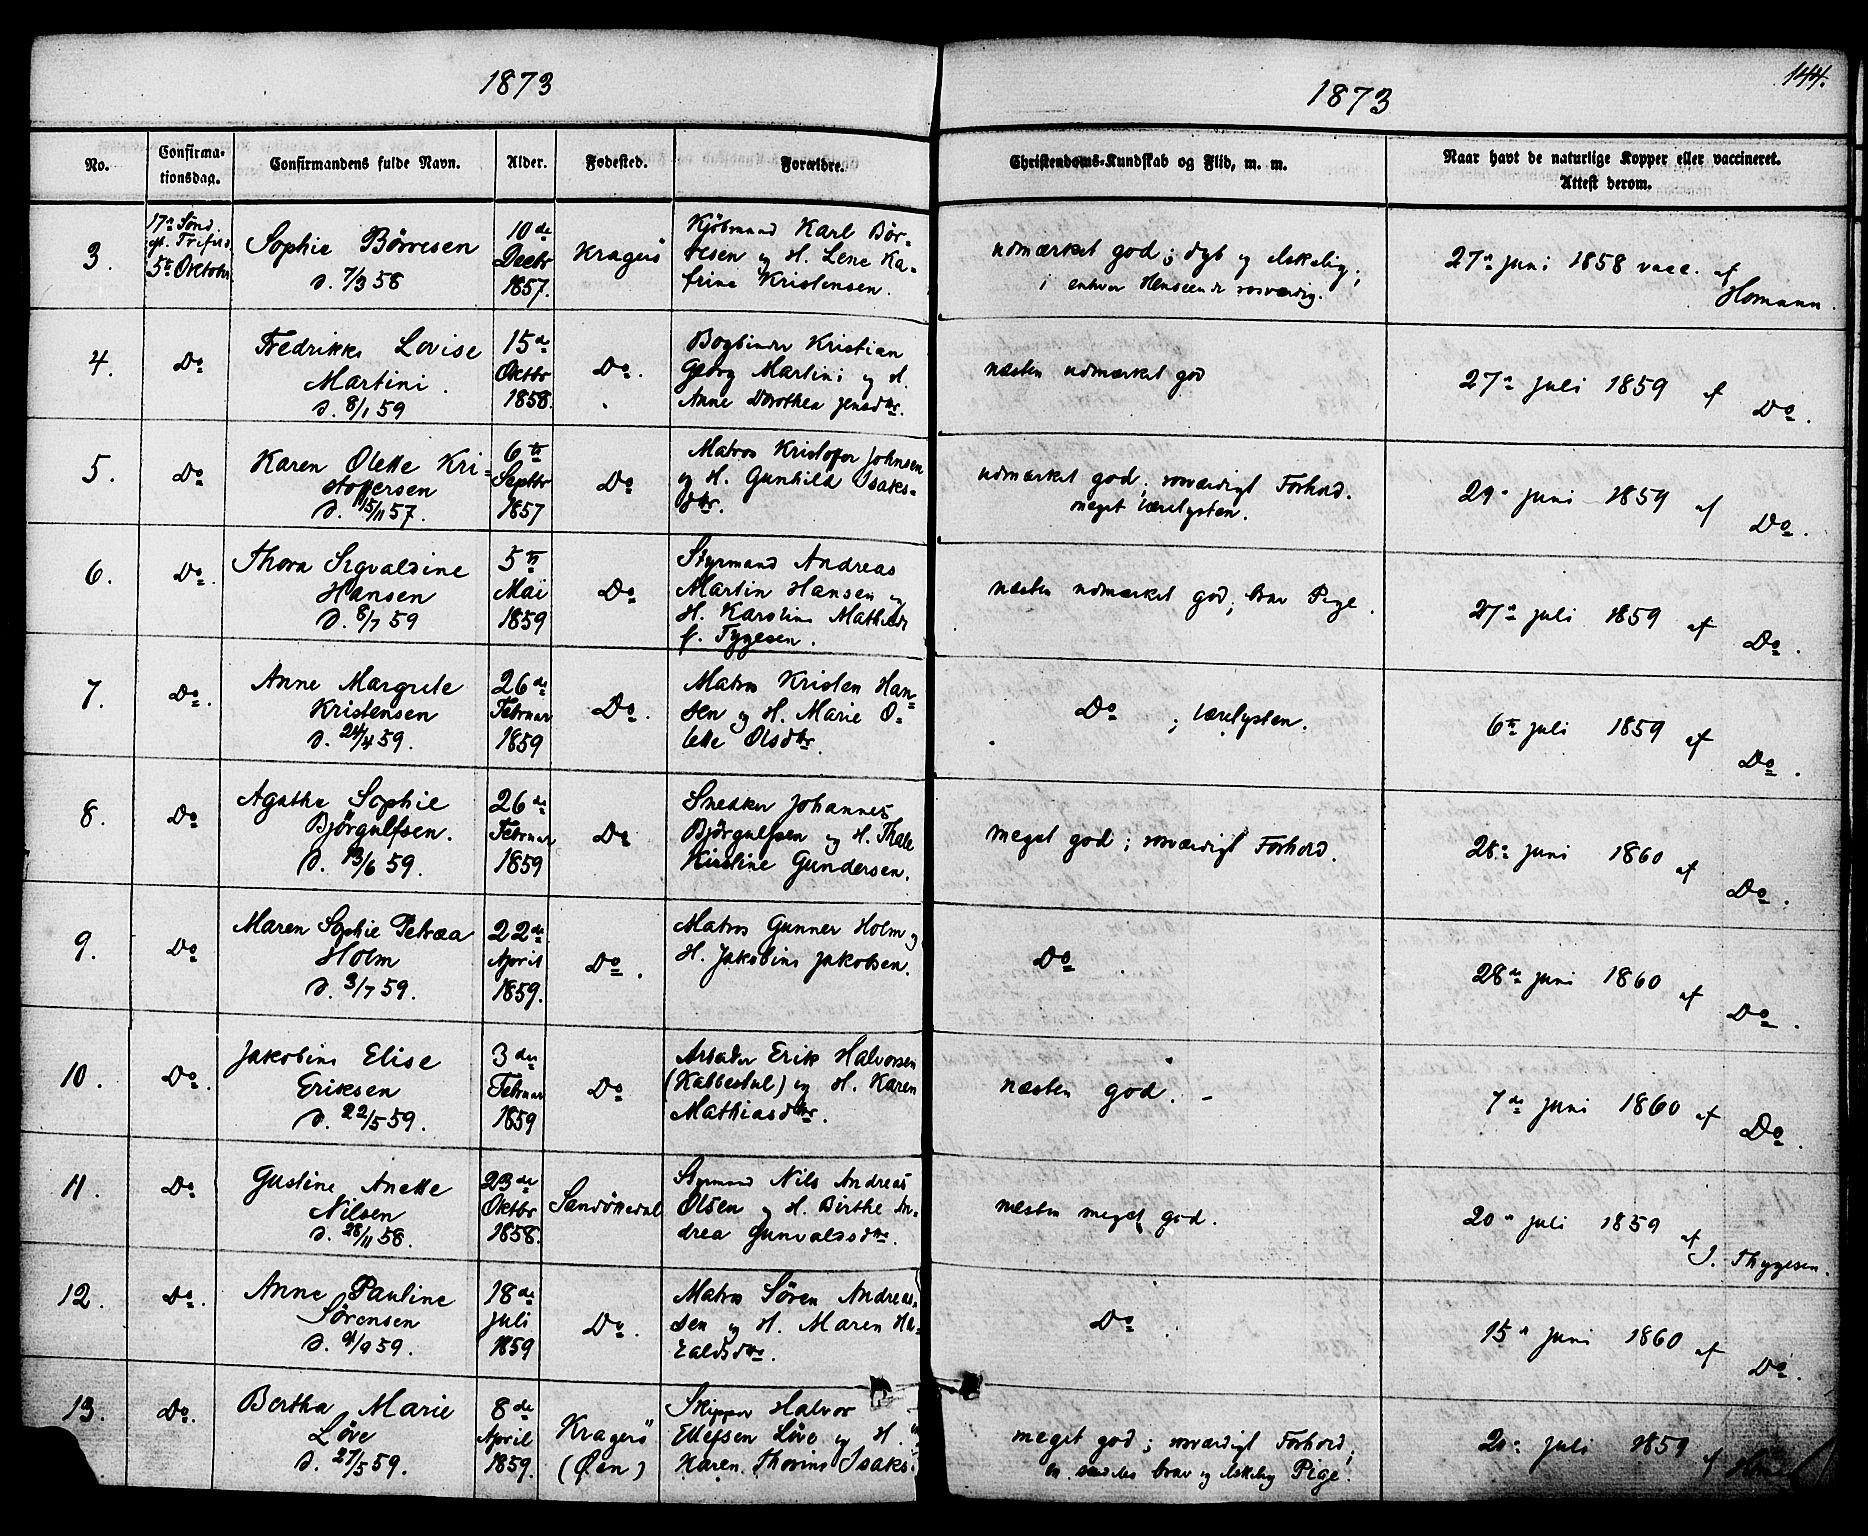 1873
1873
144.
No.
Confirma-
tionsdag.
Confirmandens fulde Navn.
Alder.
Fødested.
Forældre.
Christendoms-Kundskab og Flid, m. m.
Naar havt de naturlige Kopper eller vaccineret.
Attest derom.
3.
17de Sønd.
5te Oktober
Sophie Børresen
d. 7/3 58
10de
Decbr
1857.
Kragerö
Kjöbmand Karl Bör-
resen og H. Lene Ka-
trine Kristensen.
udmærket god; dyb og elskelig;
i enhver Henseende rosværdig.
27de Juni 1858 vacc. af
Homann.
4.
Do
Fredrikke Lovise
Martini.
d. 8/1 59
15de
Oktbr
1858.
Do.
Bogbinder Kristian
Georg Martini og H.
Anne Dorothea Jensdtr.
næsten udmærket god
27de Juli 1859 af
Do.
5.
Do
Karen Olette Kri-
stoffersen
d. 15/11 57.
6te
Septbr
1857
Do
Matros Kristofer Johnsen
og H. Gunhild Isaks-
dtr.
udmærket god; rosværdigt Forhold.
meget lærelysten.
29de Juni 1859 af
Do.
6.
Do.
Thora Sigvaldine
Hansen
d. 8/7 59
5te
Mai
1859
Do
Styrmand Andreas
Martin Hansen og
H. Karoline Mathilde
f. Tygesen.
næsten udmærket god; brav Pige.
27de Juli 1859 af
Do.
7.
Do.
Anne Margrete
Kristensen
d. 24/4 59.
26de
Februar
1859
Do.
Matros Kristen Han-
sen og H. Marie O-
lette Olsdtr.
Do ; lærelysten.
6te Juli 1859 af
Do.
8.
Do
Agathe Sophie
Bjørgulfsen.
d. 13/6 59.
26de
Februar
1859
Do
Snedker Johannes
Bjørgulfsen og H. Thale
Kirstine Gundersen.
meget god; rosværdigt Forhold.
28de Juni 1860 af
Do.
9.
Do
Maren Sophie Petræa
Holm
d. 3/7 59.
22de
April
1859.
Do.
Matros Gunner Holm og
H. Jakobine Jakobsen.
Do.
28de Juni 1860 af
Do.
10.
Do.
Jakobine Elise
Eriksen
d. 22/5 59.
3die
Februar
1859
Do
Arbeider Erik Halvorsen
(Kabbestul) og H. Karen
Mathiasdtr.
næsten god. -
7de Juni 1860 af
Do.
11.
Do
Gustine Anette
Nilsen
d. 28/11 58.
23de
Oktbr
1858.
Sandökedal
Styrmand Nils Andreas
Olsen og H. Birthe An-
drea Gunvaldsdtr.
næsten meget god.
20de Juli 1859 af
I. Thygesen.
12.
Do.
Anne Pauline
Sørensen
d. 4/9 59.
18de
Juli
1859
Do.
Matros Sören Andreas-
sen og H. Maren Ha-
raldsdtr.
Do.
15de Juni 1860 af
Do.
13.
Do.
Bertha Marie
Löve
d. 27/5 59.
8de
April
1859.
Kragerö
(Øen)
Skipper Halvor
Ellefsen Löve og H.
Karen Thorine Isaks-
meget god; rosværdigt Forhold;
en særdeles brav og elskelig Pige.
20de Juli 1859 af